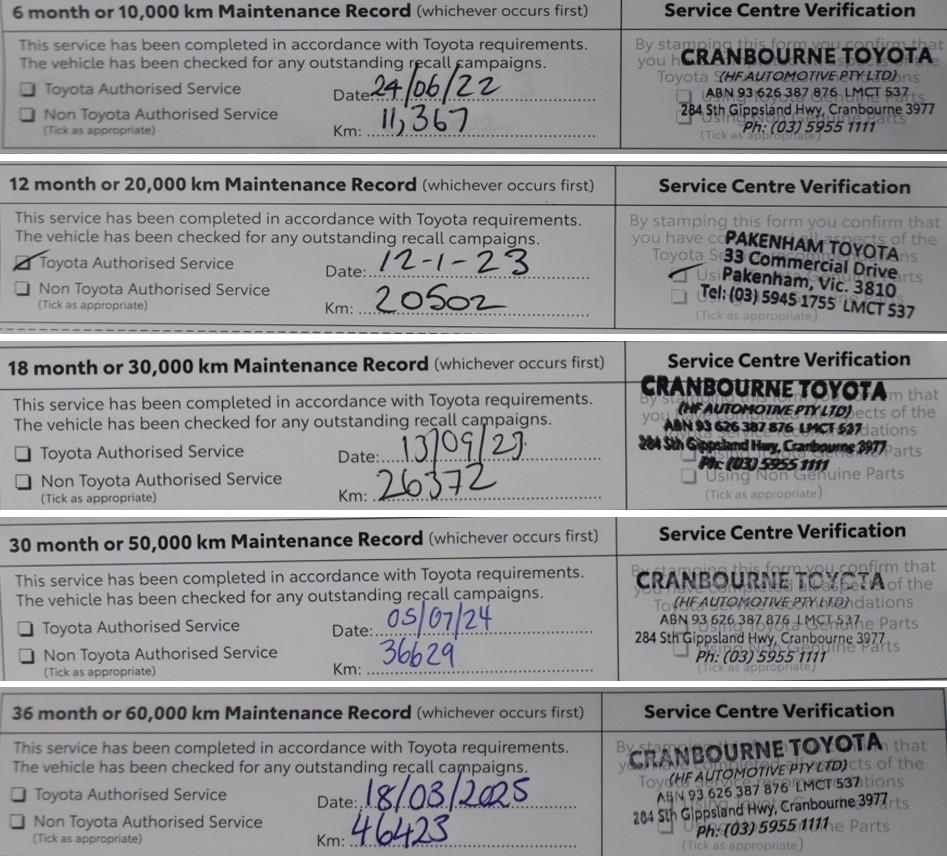 6 month or 10,000 km Maintenance Record (whichever occurs first)
Service Centre Verification
This service has been completed in accordance with Toyota requirements.
The vehicle has been checked for any outstanding recall campaigns.
Toyota Authorised Service
Non Toyota Authorised Service
(Tick as appropriate)
Date: 24/06/22
Km: 11,367
By stamping this form you confirm that
CRANBOURNE TOYOTA
(HF AUTOMOTIVE PTY LTD)
ABN 93 626 387 876 LMCT 537
284 Sth Gippsland Hwy, Cranbourne 3977
Ph: (03) 5955 1111
(Tick as appropriate)
12 month or 20,000 km Maintenance Record (whichever occurs first)
Service Centre Verification
This service has been completed in accordance with Toyota requirements.
The vehicle has been checked for any outstanding recall campaigns.
Toyota Authorised Service
Non Toyota Authorised Service
(Tick as appropriate)
Date: 12-1-23
Km: 20502
By stamping this form you confirm that
PAKENHAM TOYOTA
33 Commercial Drive
Pakenham, Vic. 3810
Tel: (03) 5945 1755 LMCT 537
(Tick as appropriate)
18 month or 30,000 km Maintenance Record (whichever occurs first)
Service Centre Verification
This service has been completed in accordance with Toyota requirements.
The vehicle has been checked for any outstanding recall campaigns.
Toyota Authorised Service
Non Toyota Authorised Service
(Tick as appropriate)
Date: 13/09/23
Km: 26372
CRANBOURNE TOYOTA
(HF AUTOMOTIVE PTY LTD)
ABN 93 626 387 876 LMCT 537
284 Sth Gippsland Hwy, Cranbourne 3977
Ph: (03) 5955 1111
Using Non Genuine Parts
(Tick as appropriate)
30 month or 50,000 km Maintenance Record (whichever occurs first)
Service Centre Verification
This service has been completed in accordance with Toyota requirements.
The vehicle has been checked for any outstanding recall campaigns.
Toyota Authorised Service
Non Toyota Authorised Service
(Tick as appropriate)
Date: 05/07/24
Km: 36629
By stamping this form you confirm that
CRANBOURNE TOYOTA
(HF AUTOMOTIVE PTY LTD)
ABN 93 626 387 876 LMCT 537
284 Sth Gippsland Hwy, Cranbourne 3977
Ph: (03) 5955 1111
(Tick as appropriate)
36 month or 60,000 km Maintenance Record (whichever occurs first)
Service Centre Verification
This service has been completed in accordance with Toyota requirements.
The vehicle has been checked for any outstanding recall campaigns.
Toyota Authorised Service
Non Toyota Authorised Service
(Tick as appropriate)
Date: 18/03/2025
Km: 46423
CRANBOURNE TOYOTA
(HF AUTOMOTIVE PTY LTD)
ABN 93 626 387 876 LMCT 537
284 Sth Gippsland Hwy, Cranbourne 3977
Ph: (03) 5955 1111
(Tick as appropriate)